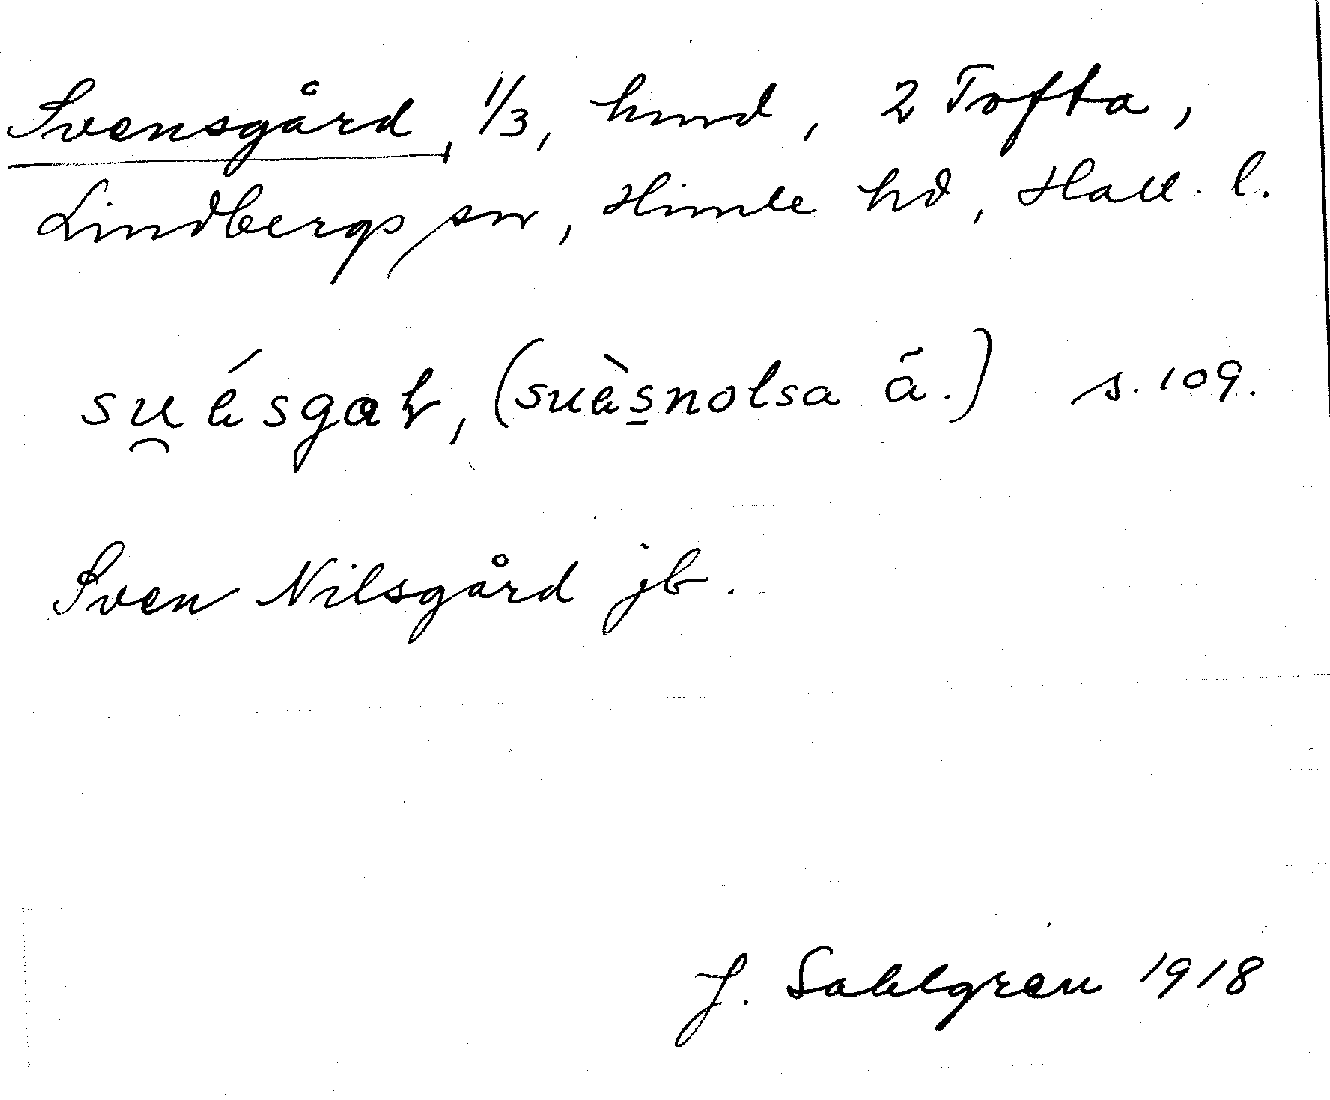 Svensgård, 1/3, hmd, 2 Tofta,
Lindbergs sn, Himle hd, Hall. l.
su̯ásgaʈ, (suàs̱nolsa ā.) s. 109.
Sven Nilsgård jb.
J. Sahlgren 1918